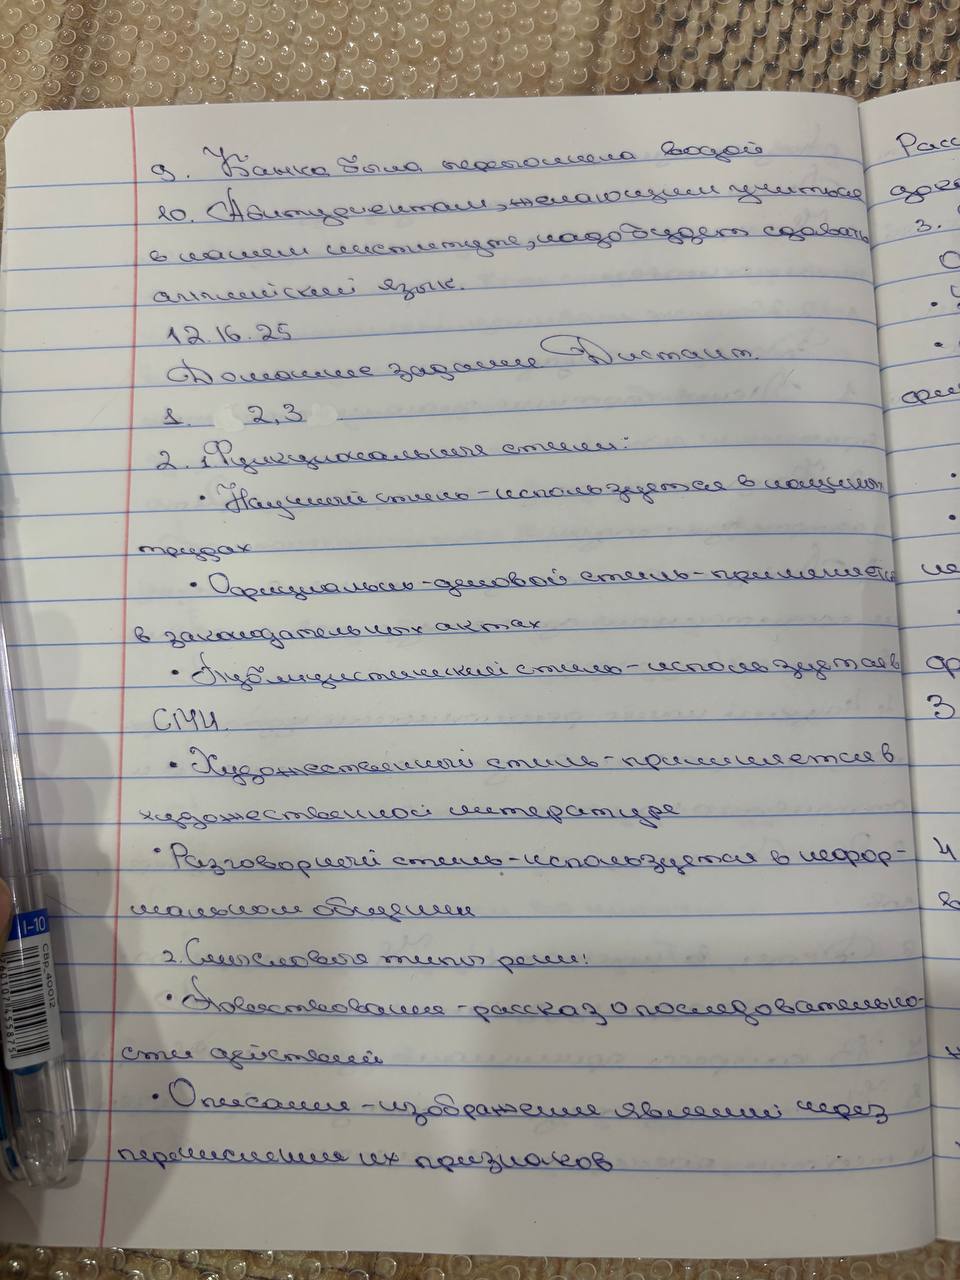 9. Банка была переполнена водой
10. Абитуриентам, желающим учиться
в нашем институте, надо будет сдавать
английский язык.
12.16.25
Домашние задание Дистант.
1. 2,3
2. 1. Функциональные стили:
• Научный стиль - используется в научных
трудах
• Официально-деловой стиль - применяется
в законодательных актах
• Публицистический стиль - используется в
СМИ.
• Художественный стиль - применяется в
художественной литературе
• Разговорный стиль - используется в нефор-
мальном общении
2. Смысловые типы речи:
• Повествования - рассказ о последовательно-
сти действий
• Описания - изображения явлений через
перечисления их признаков
Расс
3.
3
4
I-10
CBP-40012